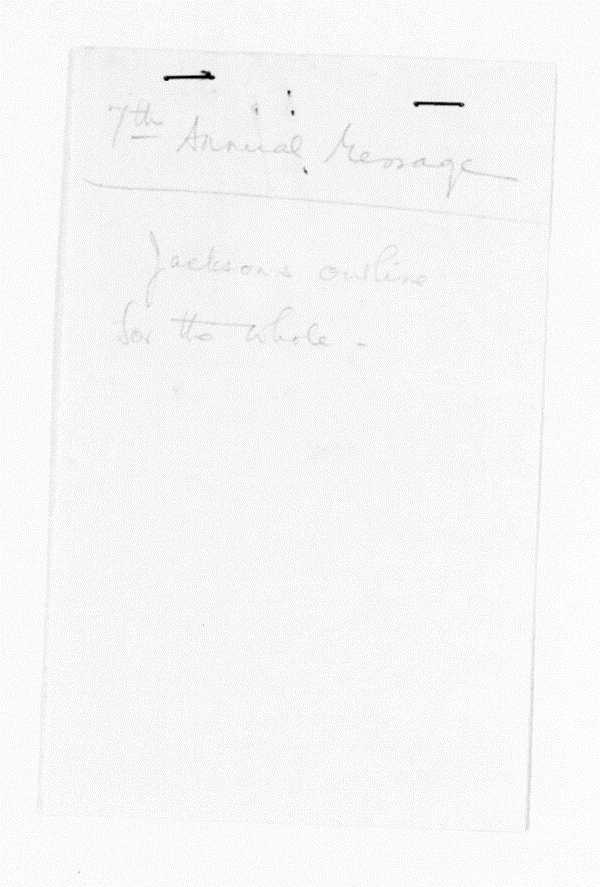 7th Annual Message
Jacksons outline
for the whole -